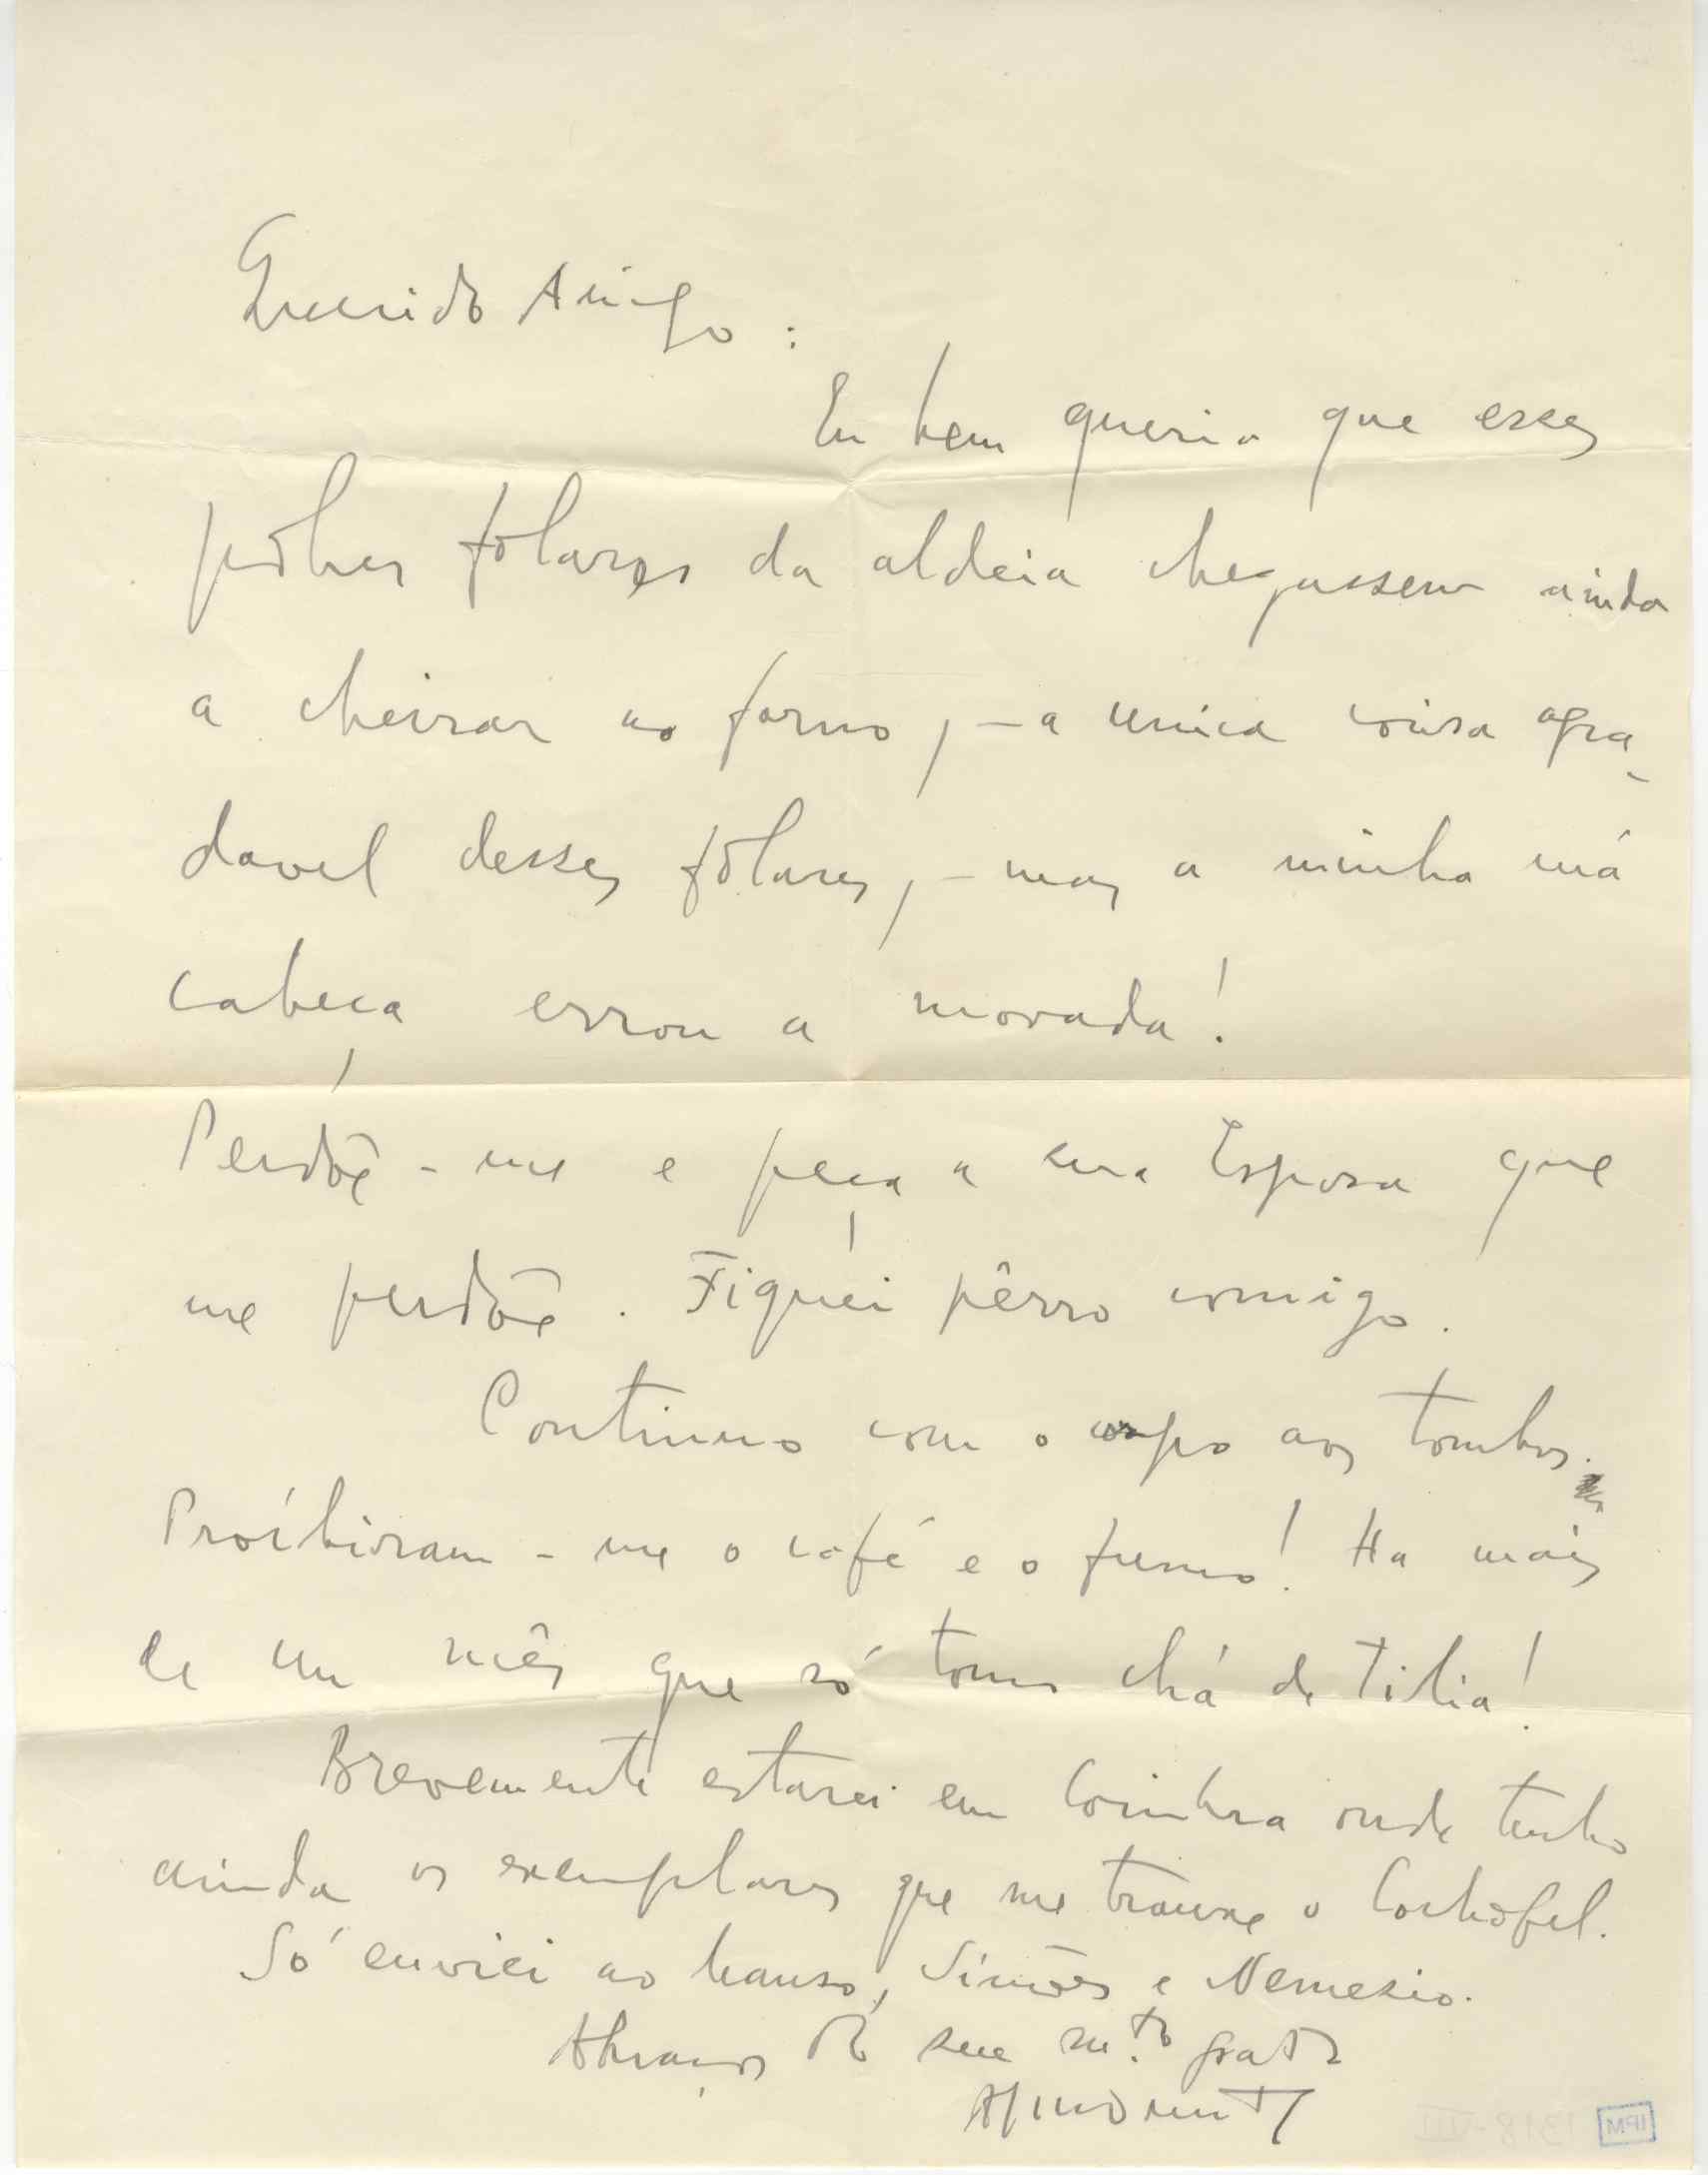 Querido Amigo:
Eu bem queria que esses
pobres folares da aldeia chegassem ainda
a cheirar ao forno, – a unica coisa agra-
davel desses folares, – mas a minha má
cabeça errou a morada!
Perdôe-me e peça a sua Esposa que
me perdôe. Fiquei pêrro comigo.
Continuo com o corpo aos tombos.
Proíbiram-me o café e o fumo! Ha mais
de um mês que só tomo chá de tilia!
Brevemente estarei em Coimbra onde tenho
ainda os exemplares que me trouxe o Cochofel.
Só enviei ao Manso, Simões e Nemesio.
Abraços do seu m.to grato
IPM